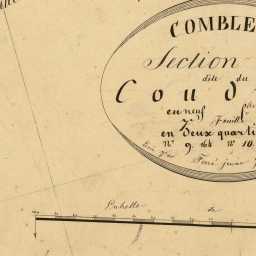 COMBLE
Section
dite du
Coud
en neuf
feuille
en deux quarti
N° 9. 164 N° 10
Echelle de